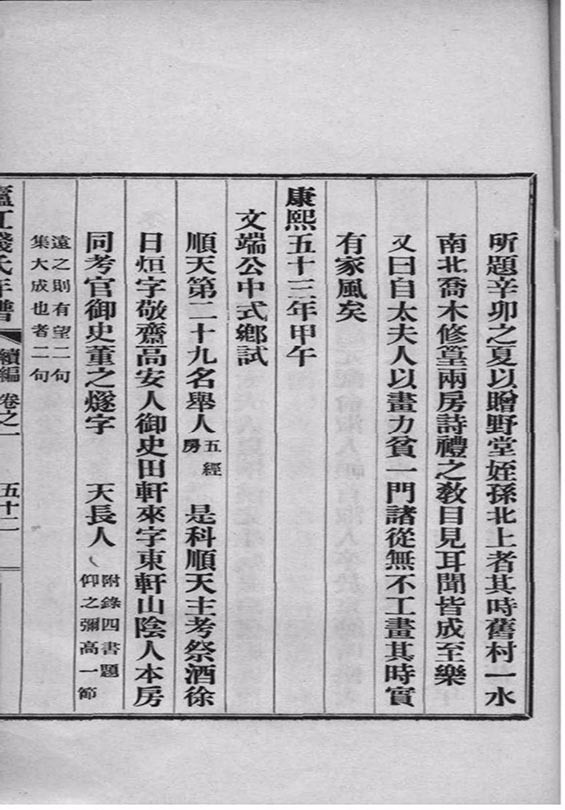 所題辛卯之夏以贈野堂姪孫北上者其時舊村一水
南北喬木修篁兩房詩禮之敎目見耳聞皆成至樂
又曰自太夫人以畫力貧一門諸從無不工畫其時實
有家風矣
康熙五十三年甲午
文端公中式鄉試
順天第二十九名舉人五經房 是科順天主考祭酒徐
日烜字敬齋高安人御史田軒來字東軒山陰人本房
同考官御史董之燧字 天長人
附錄四書題
仰之彌高一節
遠之則有望二句
集大成也者二句
廬江錢氏年譜 續編 卷之一 五十二